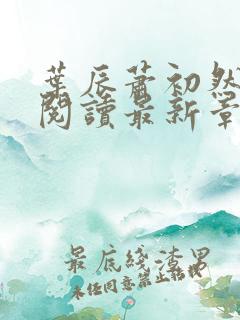 葉辰蕭初然
閱讀最新章
最底線渣男
未經同意禁止轉載